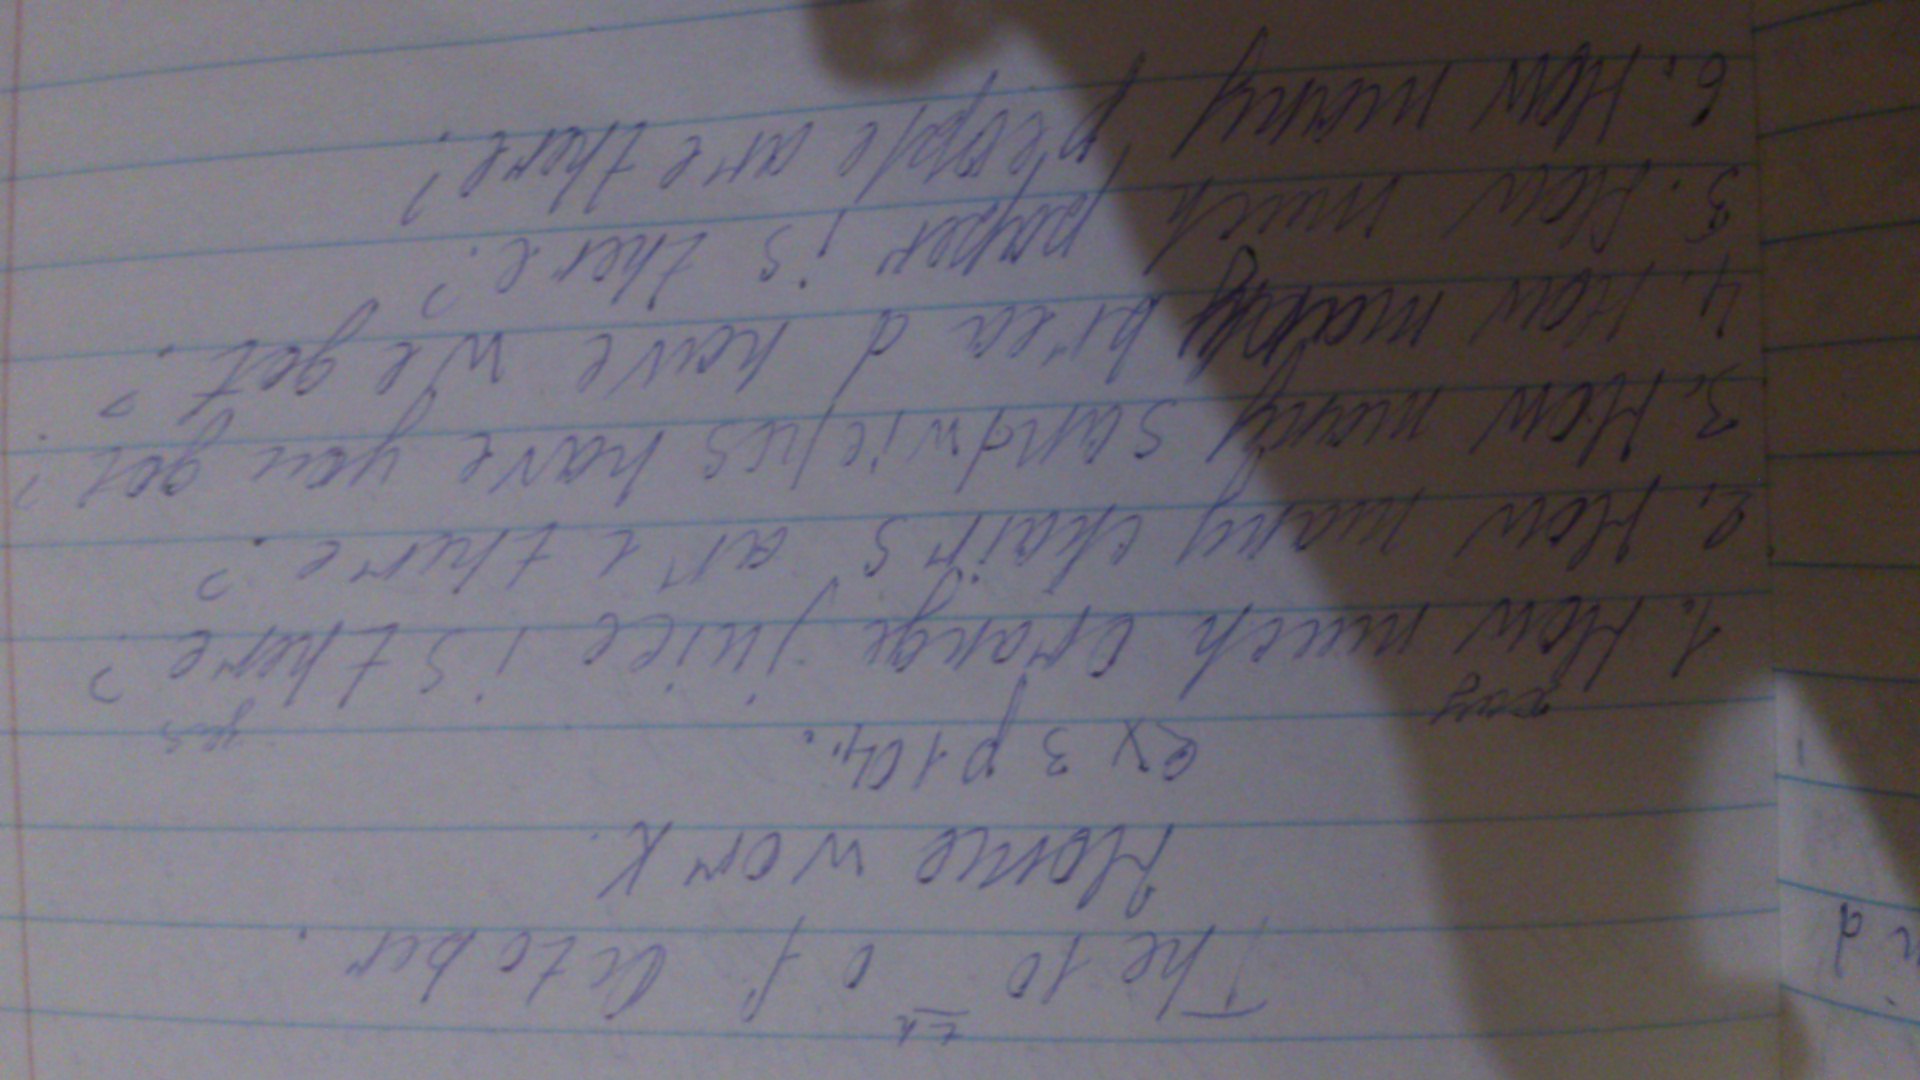 The 10th of October.
Home work.
ex 3 p 104.
1. How much orange juice is there?
2. How many chairs are there?
3. How many sandwiches have you got?
4. How many bread have we got?
5. How much paper is there?
6. How many people are there?